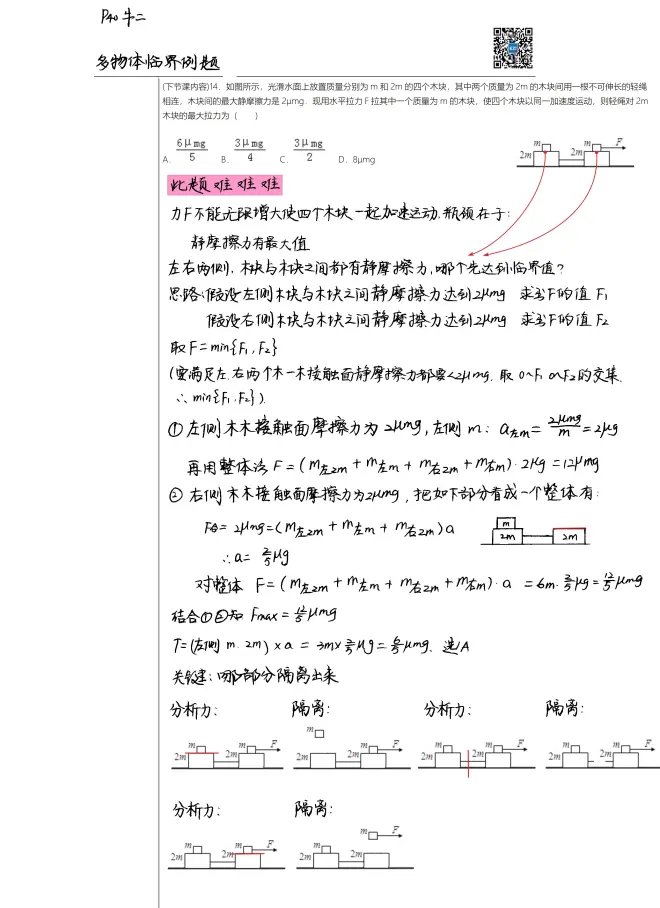 P40 牛二
多物体临界例题
(下节课内容)14．如图所示，光滑水面上放置质量分别为 m 和 2m 的四个木块，其中两个质量为 2m 的木块间用一根不可伸长的轻绳
相连，木块间的最大静摩擦力是 2μmg．现用水平拉力 F 拉其中一个质量为 m 的木块，使四个木块以同一加速度运动，则轻绳对 2m
木块的最大拉力为（　　）
A．6μmg/5　B．3μmg/4　C．3μmg/2　D．8μmg
m m F
2m 2m
此题难难难
力F不能无限增大使四个木块一起加速运动.瓶颈在于:
静摩擦力有最大值
左右两侧,木块与木块之间都有静摩擦力,哪个先达到临界值?
思路:假设左侧木块与木块之间静摩擦力达到2μmg 求出F的值 F1
假设右侧木块与木块之间静摩擦力达到2μmg 求出F的值 F2
取F=min{F1,F2}
(要满足左.右两个木—木接触面静摩擦力都要<2μmg. 取 0~F1 0~F2的交集.
∴ min{F1,F2}).
①左侧木木接触面摩擦力为2μmg,左侧m: a左m=2μmg/m=2μg
再用整体法 F=(m左2m+m左m+m右2m+m右m)·2μg=12μmg
②右侧木木接触面摩擦力为2μmg,把如下部分看成一个整体有:
m
2m 2m
F合=2μmg=(m左2m+m左m+m右2m)a
∴a=2/5μg
对整体 F=(m左2m+m左m+m右2m+m右m)·a =6m·2/5μg=12/5μmg
结合①②知 Fmax=12/5μmg
T=(左侧 m. 2m)×a=3m×2/5μg=6/5μmg. 选A
关键:哪部分隔离出来
分析力: 隔离: 分析力: 隔离:
m m F
2m 2m
m m F
2m 2m
m m F
2m 2m
m m F
2m 2m
分析力: 隔离:
m m F
2m 2m
m m F
2m 2m